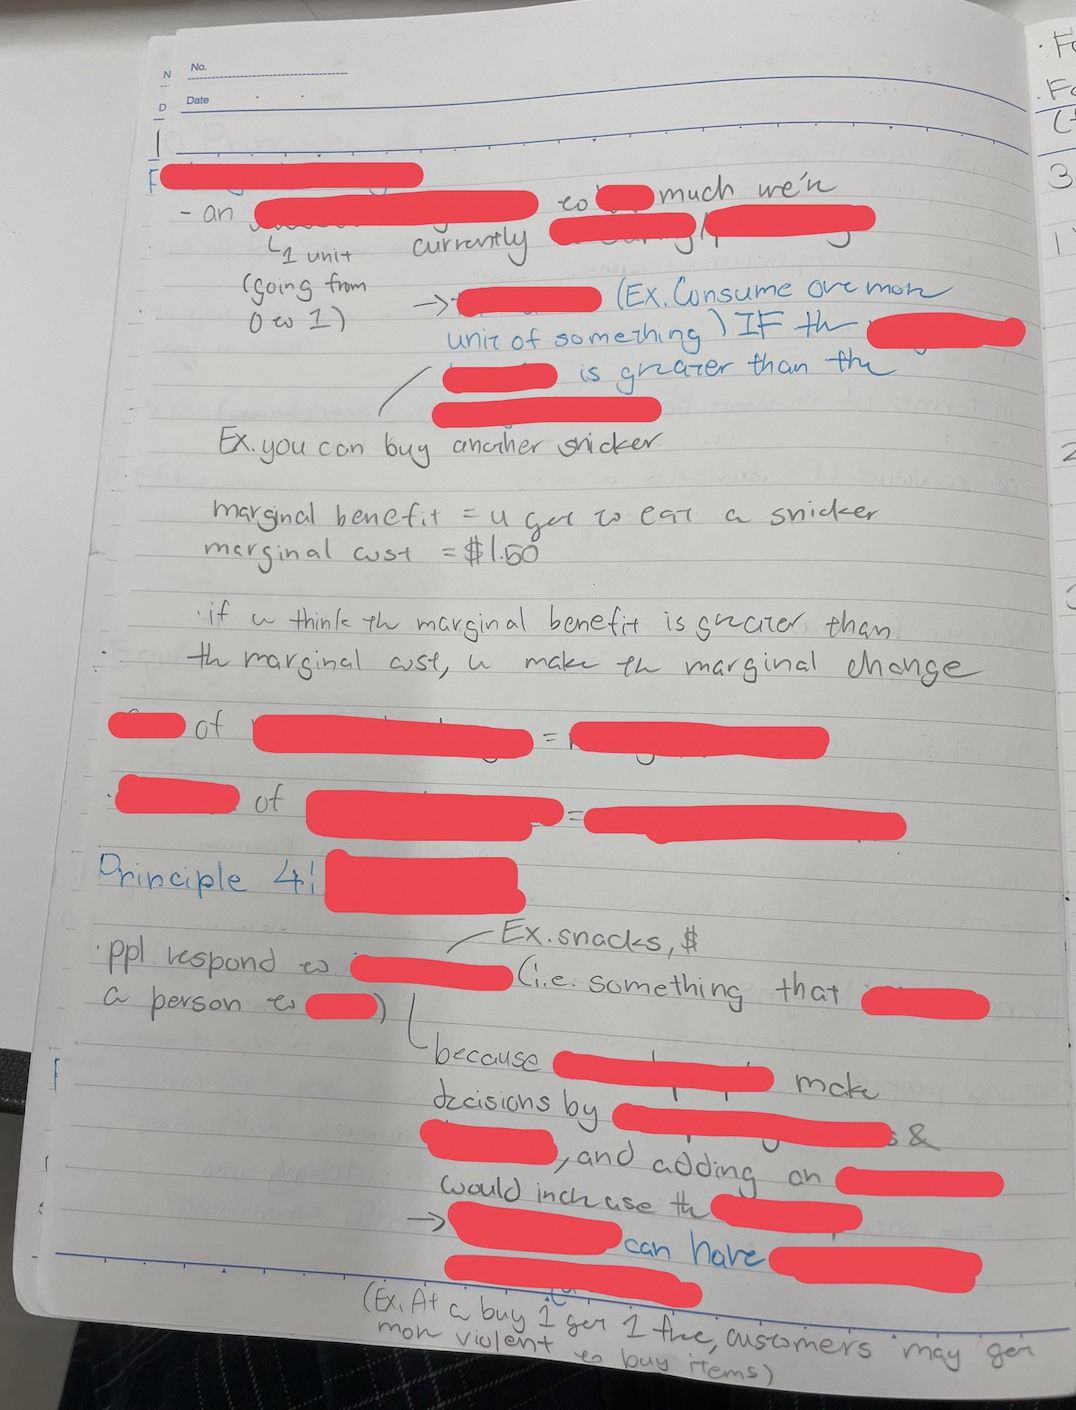 No.
N
Date
D
- an to much we're
1 unit currently
(going from → (Ex. Consume one more
0 to 1) unit of something) IF the
is greater than the
Ex. you can buy another snicker
marginal benefit = u get to eat a snicker
marginal cost = $1.50
·if u think the marginal benefit is greater than
the marginal cost, u make the marginal change
of =
· of =
Principle 4:
Ex. snacks, $
·ppl respond to (i.e. something that
a person to )
because make
decisions by s &
, and adding an
would increase the
→ can have
(Ex. At a buy 1 get 1 free, customers may get
more violent to buy items)